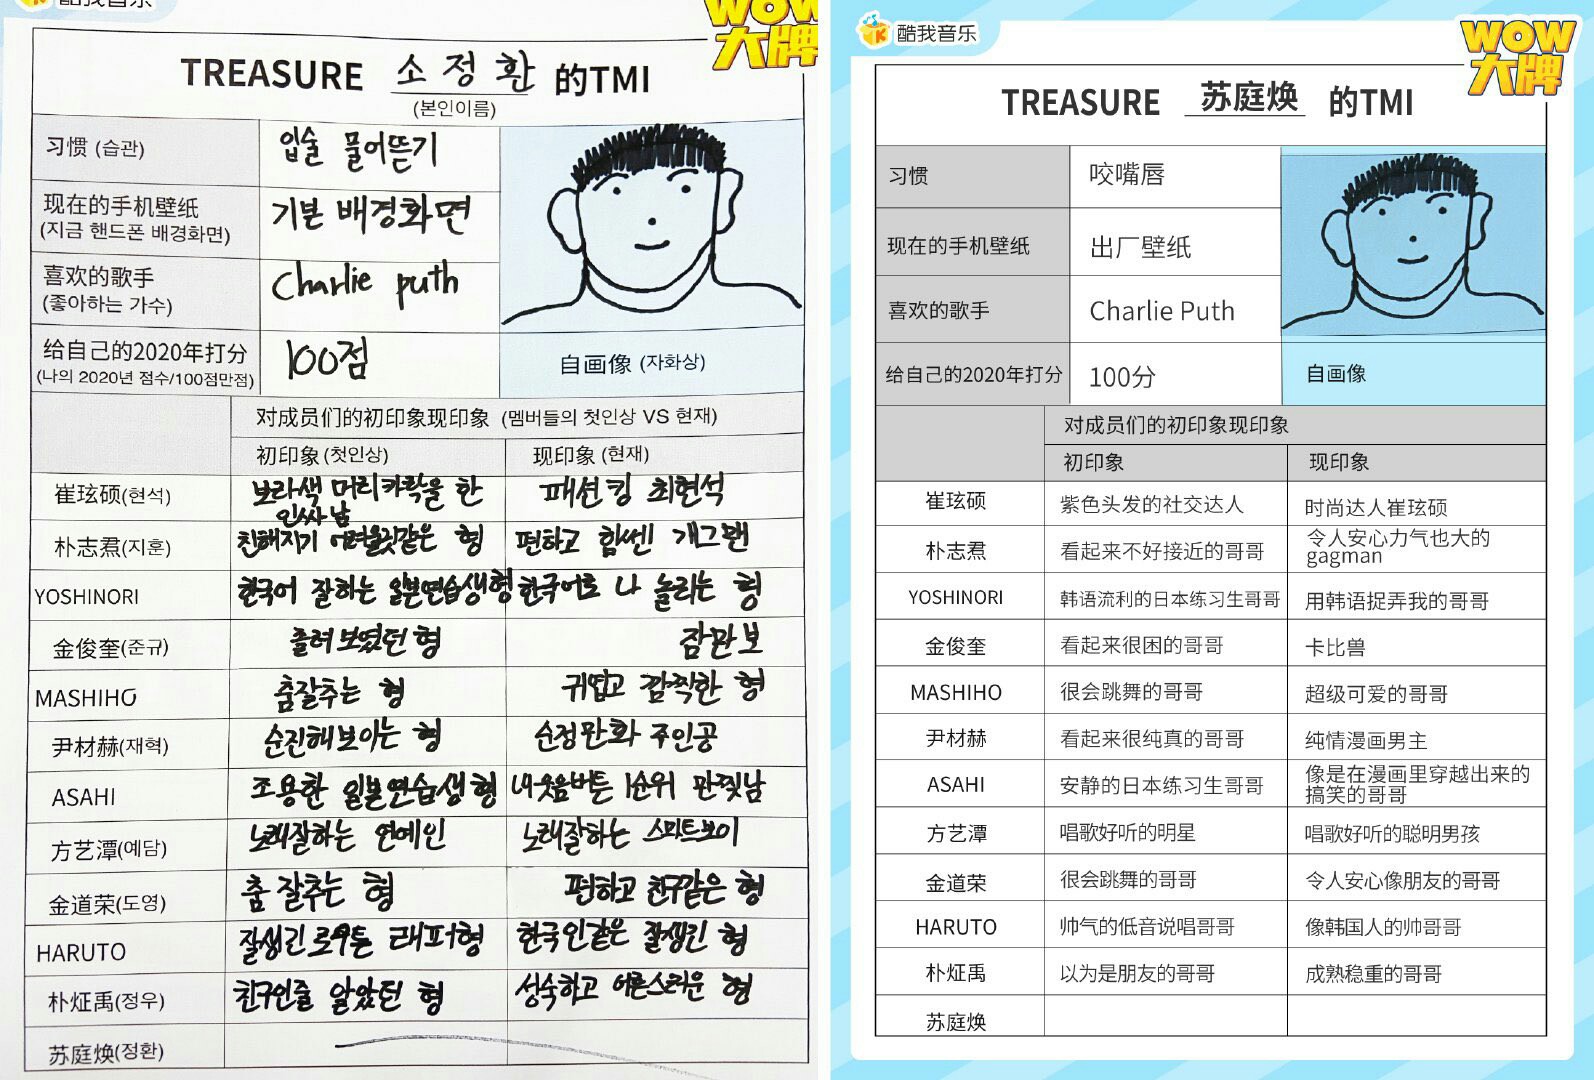 酷我音乐
WOW
大牌
TREASURE 소정환 的TMI
(본인이름)
习惯 (습관)
입술 물어뜯기
现在的手机壁纸
(지금 핸드폰 배경화면)
기본 배경화면
喜欢的歌手
(좋아하는 가수)
Charlie puth
给自己的2020年打分
(나의 2020년 점수/100점만점)
100점
自画像 (자화상)
对成员们的初印象现印象 (멤버들의 첫인상 VS 현재)
初印象 (첫인상) 现印象 (현재)
崔玹硕(현석) 보라색 머리카락을 한 패션킹 최현석
인싸남
朴志焄(지훈) 친해지기 어려울것같은 형 편하고 힘쎈 개그맨
YOSHINORI 한국어 잘하는 일본연습생형 한국어로 나 놀리는 형
金俊奎(준규) 졸려보였던 형 잠만보
MASHIHO 춤잘추는 형 귀엽고 깜찍한 형
尹材赫(재혁) 순진해보이는 형 순정만화 주인공
ASAHI 조용한 일본연습생형 내웃음버튼 1순위 만찢남
方艺潭(예담) 노래잘하는 연예인 노래잘하는 스마트보이
金道荣(도영) 춤 잘추는 형 편하고 친구같은 형
HARUTO 잘생긴 로우톤 래퍼형 한국인같은 잘생긴 형
朴炡禹(정우) 친구인줄 알았던 형 성숙하고 어른스러운 형
苏庭焕(정환)
酷我音乐
WOW
大牌
TREASURE 苏庭焕 的TMI
习惯 咬嘴唇
现在的手机壁纸 出厂壁纸
喜欢的歌手 Charlie Puth
给自己的2020年打分 100分
自画像
对成员们的初印象现印象
初印象 现印象
崔玹硕 紫色头发的社交达人 时尚达人崔玹硕
朴志焄 看起来不好接近的哥哥 令人安心力气也大的
gagman
YOSHINORI 韩语流利的日本练习生哥哥 用韩语捉弄我的哥哥
金俊奎 看起来很困的哥哥 卡比兽
MASHIHO 很会跳舞的哥哥 超级可爱的哥哥
尹材赫 看起来很纯真的哥哥 纯情漫画男主
ASAHI 安静的日本练习生哥哥 像是在漫画里穿越出来的
搞笑的哥哥
方艺潭 唱歌好听的明星 唱歌好听的聪明男孩
金道荣 很会跳舞的哥哥 令人安心像朋友的哥哥
HARUTO 帅气的低音说唱哥哥 像韩国人的帅哥哥
朴炡禹 以为是朋友的哥哥 成熟稳重的哥哥
苏庭焕